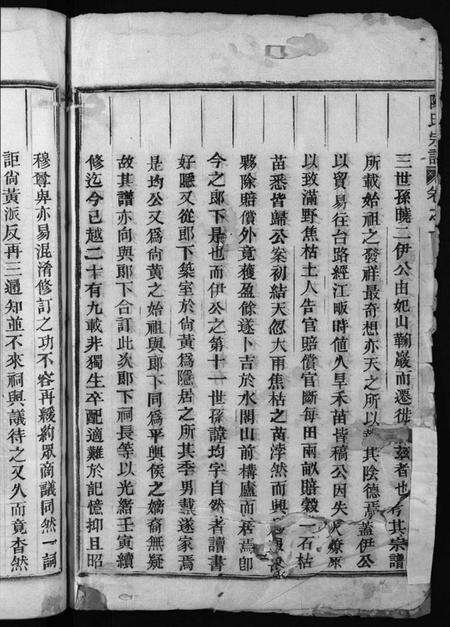 陳氏宗譜 卷之
三世孫曉二伊公由妃山鞠巖而遷徙茲者也考其宗譜
所載始祖之發祥最奇想亦天之所以其陰德焉蓋伊公
以貿易往台路經江畈時値久旱禾苗皆稿公因失火燎來
以致滿野焦枯土人告官賠償官斷每田南畝賠穀一石枯
苗悉皆歸公案初結天忽大雨焦枯之苗浡然而興
夥除賠償外竟獲盈餘遂卜吉於水閣山前構廬而居焉卽
今之郎下是也而伊公之第十一世孫諱均字自然者讀書
好隱又從郎下築室於尙黃爲隱居之所其季男戴遂家焉
是均公又爲尙黃之始祖與郎下同爲平輿侯之嫡裔無疑
故其譜亦向與郎下合訂此次郎下祠長等以光緒壬寅續
修迄今已越二十有九載非獨生卒配適難於記憶抑且昭
穆尊卑亦易混淆修訂之功不容再緩約眾商議同然一詞
詎尙黃派反再三通知並不來祠與議待之又久而竟杳然